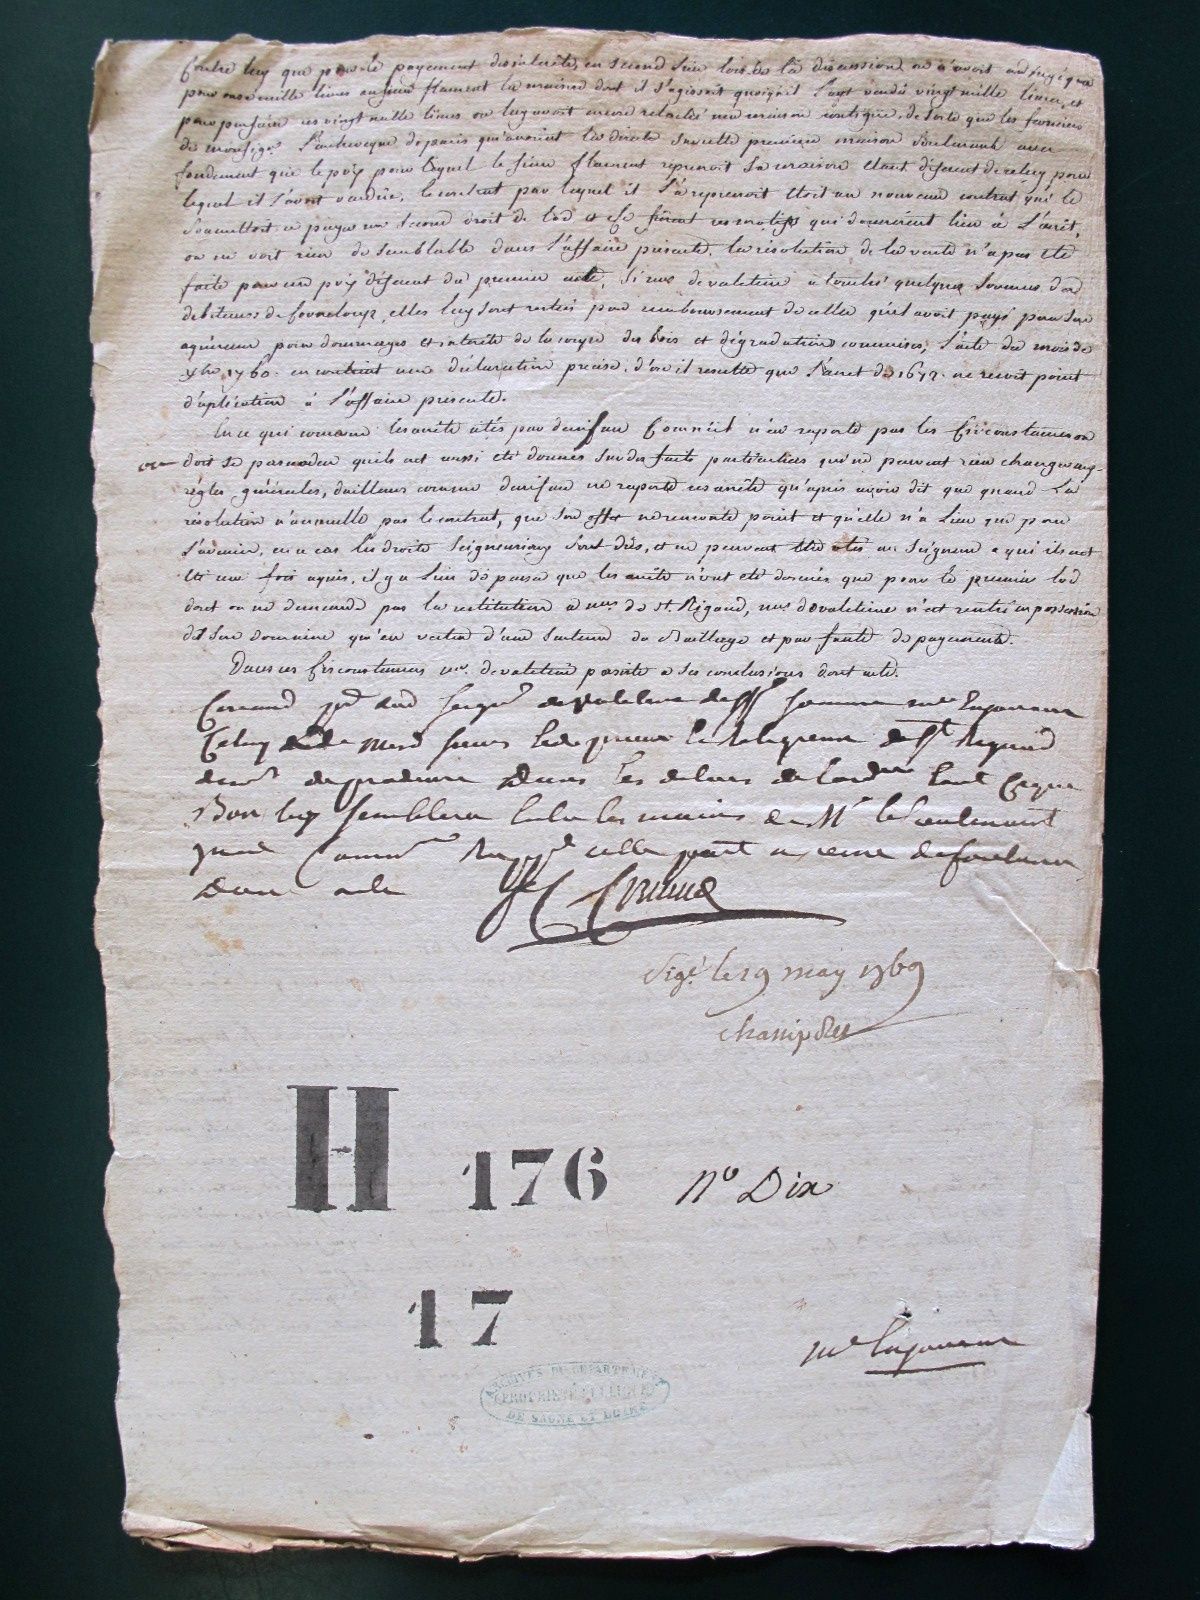 Contre luy que pour le payement des interêts, en second lieu lors de la discussion on n'avoit adjugé que
pour onze mille livres au sieur flament la maison dont il s'agissoit quoiqu'il l'eut vendu vingt mille livres, et
pour parfaire ces vingt mille livres on luy avoit encore relaché une maison contigue, de sorte que les fermiers
de monseigr. l'archeveque de paris qu'avoient la directe sur cette premiere maison soutenant avec
fondement que le prix pour lequel le sieur flament reprenoit sa maison etant different de celuy pour
lequel il l'avoit vendüe, le contrat par lequel il la reprenoit etoit un nouveau contrat qui le
soumettoit a payer un second droit de lod et ce furent ces motifs qui donnerent lieu à l'arrêt,
on ne voit rien de semblable dans l'affaire presente. la résolution de la vente n'a pas été
faite pour un prix different du premier acte, si mr. de valetine a touché quelques sommes des
debiteurs de , elles luy sont restées pour remboursement de celles qu'il avoit payé pour son
aquéreur pour dommages et interêts de la coupe des bois et dégradations commises, l'acte du mois de
xbre 1760. en contient une déclaration precise, d'ou il resulte que l'arret de 1672. ne recoit point
d'aplication à l'affaire presente.
En ce qui concerne les arrêts cités par dunod comme il n'en raporte pas les circonstances on
doit se persuader qu'ils ont aussi eté donnés sur des faits particuliers qui ne peuvent rien changer aux
règles générales, d'ailleurs comme ne raporte ces arrêts qu'après avoir dit que quand la
résolution n'annulle pas le contrat, que son effet ne remonte point et qu'elle n'a lieu que pour
l'avenir, en ce cas les droits seigneuriaux sont dûs, et ne peuvent être otés au seigneur a qui ils ont
été une fois aquis, il y a lieu de penser que les arrêts n'ont eté donnés que pour le premier lod
dont on ne demande pas la restitution a mrs. de st. Rigaud, mr. de valetine n'est rentré en possession
de son domaine qu'en vertu d'une sentence du Bailliage et par faute de payement.
Dans ces circonstances mr. de valetine persiste a ses conclusions dont acte.
somme me lajoneur
Celuy de Mess sieurs les prieur et Religieux de St Rigaud
de produire Dans les delais de l'ord tout ce que
Bon luy semblera entre les mains de Mr le lieutenant
celle part a peine de forclusion
Dont acte
Sigé le 19 may 1769
H 176 No Dix
17
me lajoneur
ARCHIVES DU DÉPARTEMENT
PROPRIÉTÉ PUBLIQUE
DE SAONE ET LOIRE